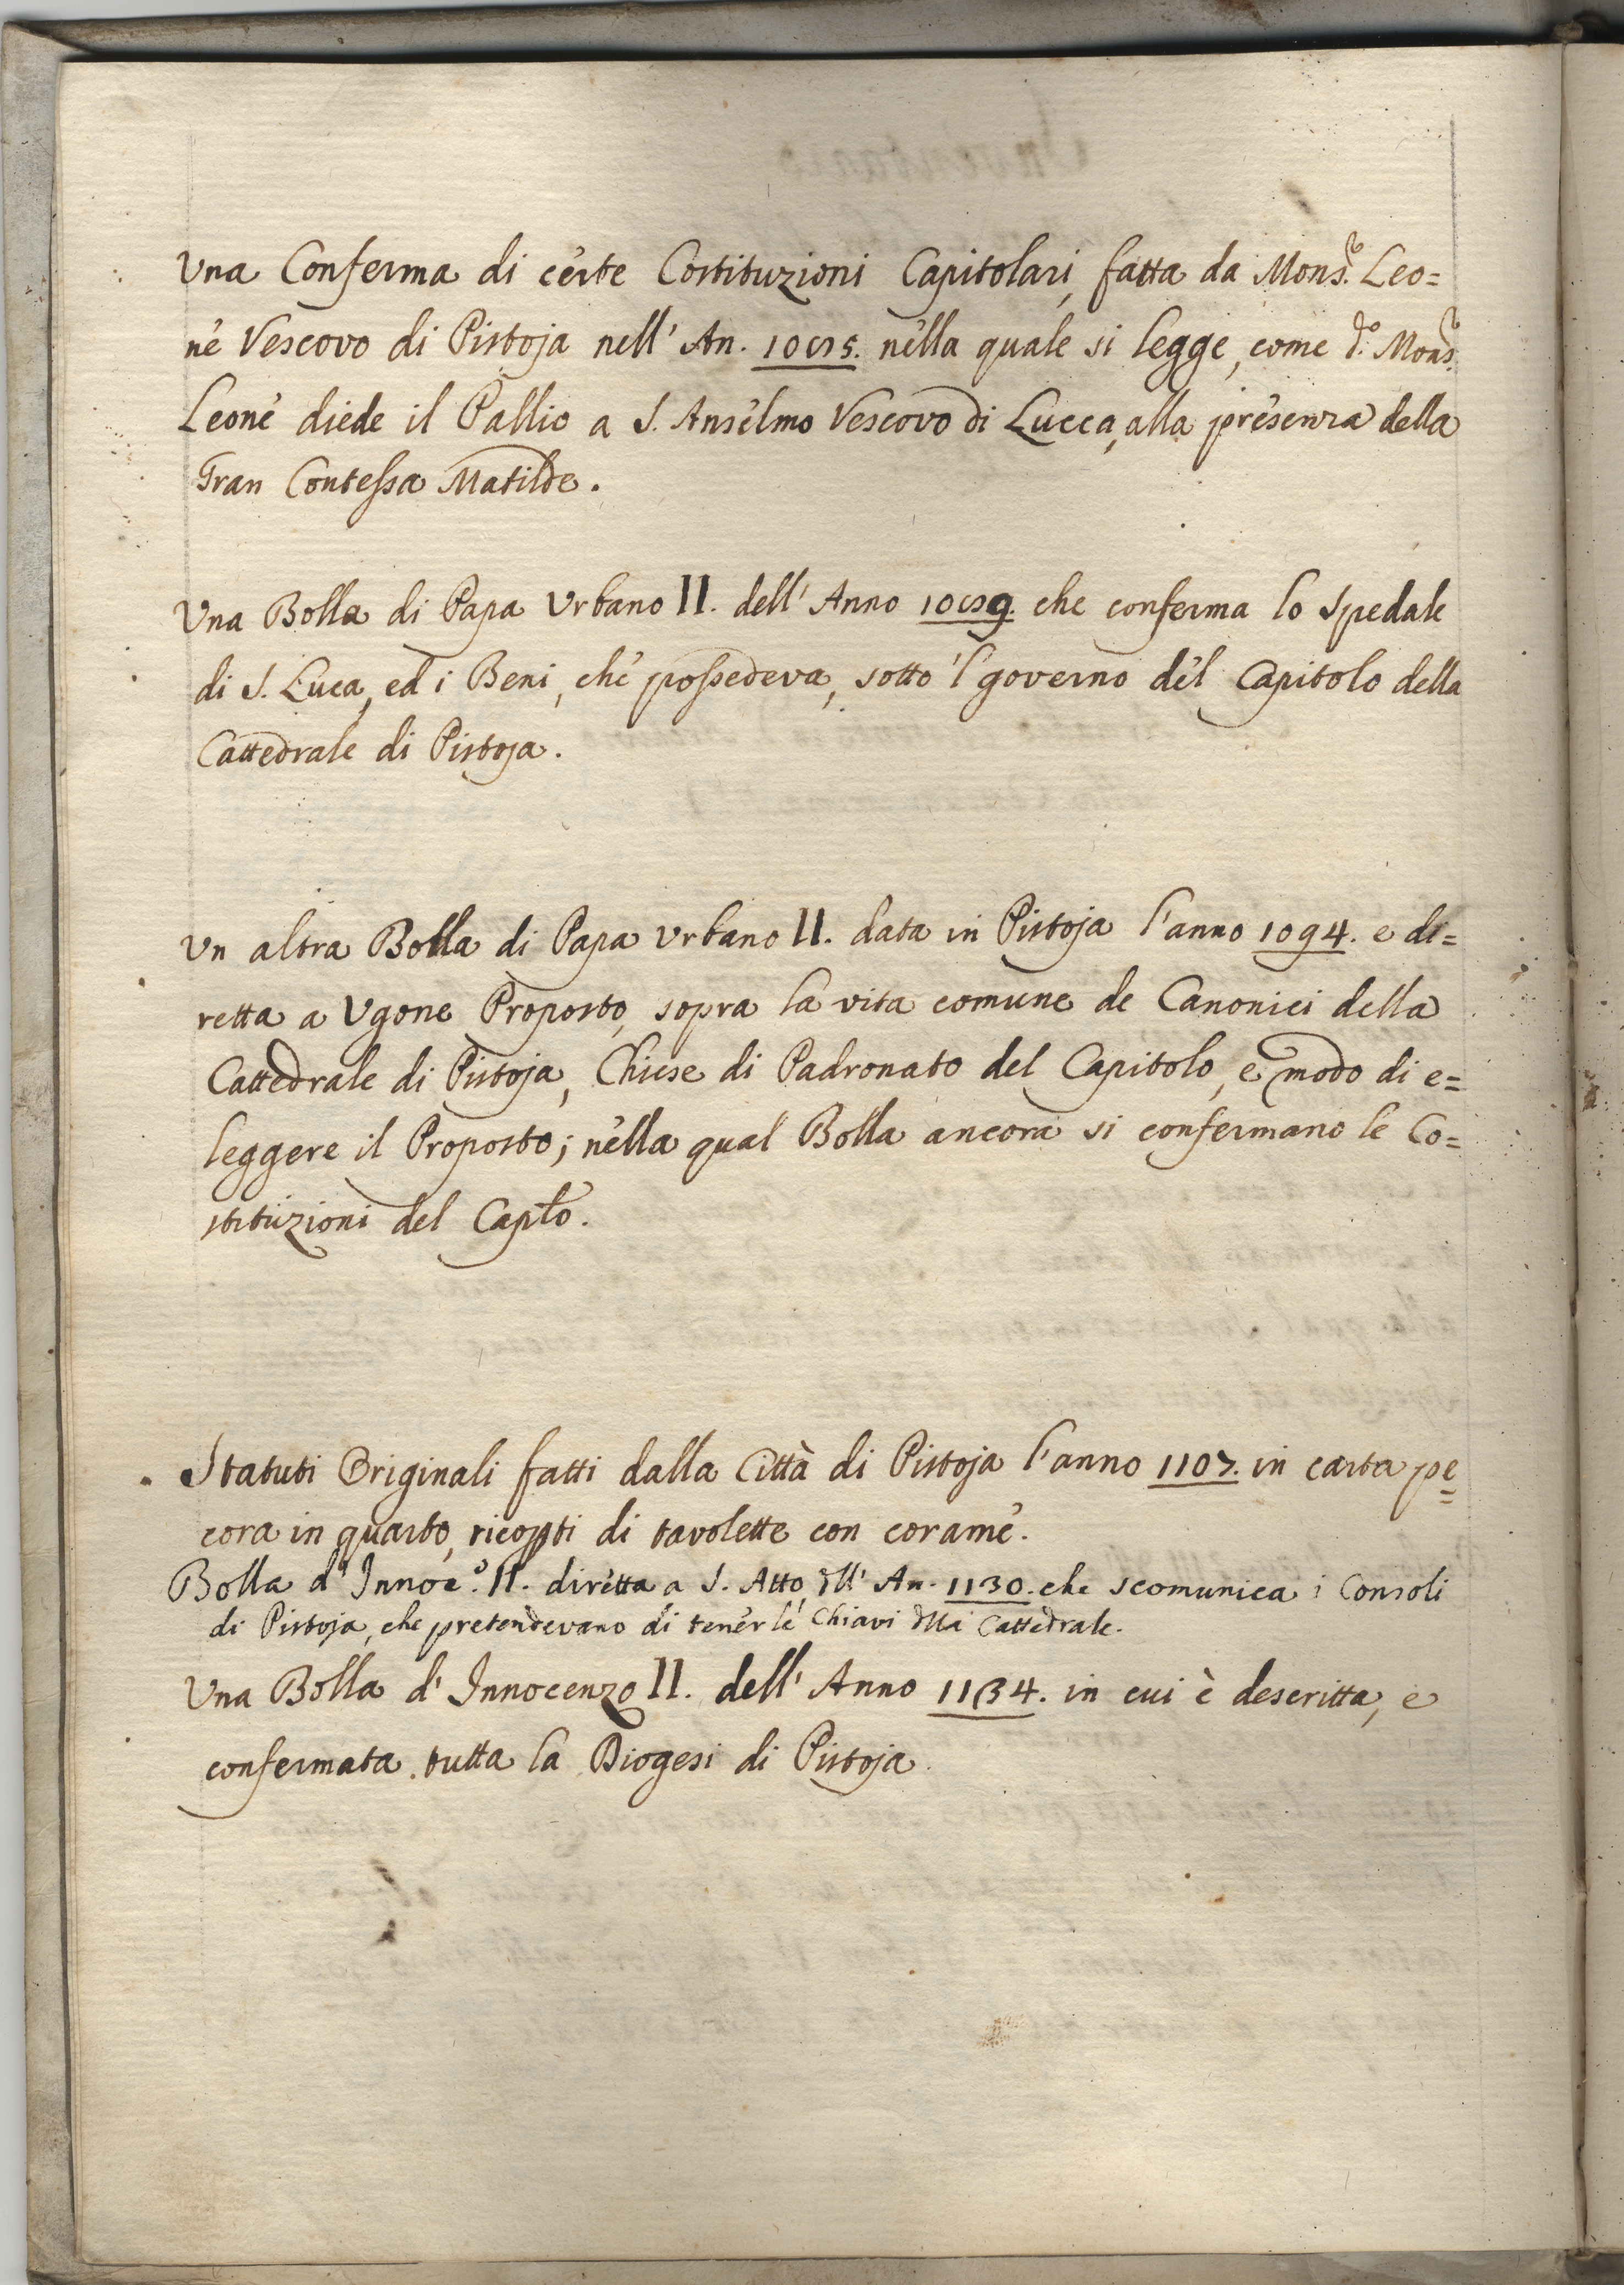 Una Conferma di certe Costituzioni Capitolari, fatta da Mons.r Leo=
ne Vescovo di Pistoja nell' An. 1085. nella quale si legge, come d.o Mons.r
Leone diede il Pallio a S. Anselmo Vescovo di Lucca, alla presenza della
Gran Contessa Matilde.
Una Bolla di Papa Urbano II. dell' Anno 1089. che conferma lo Spedale
di S. Luca, ed i Beni, che possedeva, sotto 'l governo del Capitolo della
Cattedrale di Pistoja.
Un altra Bolla di Papa Urbano II. data in Pistoja l'anno 1094. e di=
retta a Ugone Proposto, sopra la vita comune de Canonici della
Cattedrale di Pistoja, Chiese di Padronato del Capitolo, e modo di e=
leggere il Proposto; nella qual Bolla ancora si confermano le Co=
stituzioni del Capto.
Statuti Originali fatti dalla Città di Pistoja l'anno 1107. in carta pe=
cora in quarto, ricopti di tavolette con corame.
Bolla d' Innoc.o II. diretta a S. Atto, dll' An. 1130. che scomunica i Consoli
di Pistoja, che pretendevano di tener le Chiavi dlla Cattedrale.
Una Bolla d' Innocenzo II. dell' Anno 1134. in cui è descritta, e
confermata tutta la Diogesi di Pistoja.